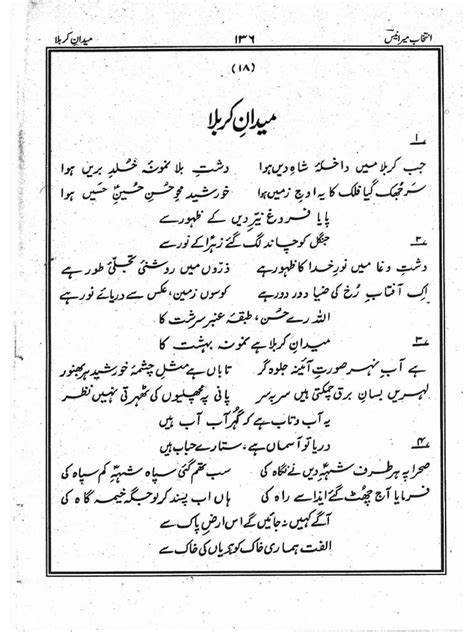 انتخاب میر انیس ۱۳۶ میدانِ کربلا
(۱۸)
میدانِ کربلا
۱
جب کربلا میں داخلۂ شاہِ دیں ہوا دشتِ بلا نمونۂ خُلدِ بریں ہوا
سر جھک گیا فلک کا یہ اوجِ زمیں ہوا خورشید محوِ حُسنِ حسینِؑ حَسیں ہوا
پایا فروغ نیّرِ دیں کے ظہور سے
جنگل کو چاند لگ گئے زہراؑ کے نور سے
۲
دشتِ وغا میں نورِ خدا کا ظہور ہے ذرّوں میں روشنیِ تجلّیِ طور ہے
اِک آفتابِ رُخ کی ضیا دور دور ہے کوسوں زمین، عکس سے دریائے نور ہے
اللہ رے حُسن، طبقۂ عنبر سرشت کا
میدانِ کربلا ہے نمونہ بہشت کا
۳
ہے آبِ نہر صورتِ آئینہ جلوہ گر تاباں ہے مثلِ چشمۂ خورشید ہر بھنور
لہریں بسانِ برق چمکتی ہیں سر بہ سر پانی پہ مچھلیوں کی ٹھہرتی نہیں نظر
یہ آب و تاب ہے کہ گُہر آب آب ہیں
دریا تو آسماں ہے، ستارے حباب ہیں
۴
صحرا پہ ہر طرف شہِؑ دیں نے نگاہ کی سب تھم گئی سپاہ شہِؑ کم سپاہ کی
فرمایا آج چھٹ گئے ایذا سے راہ کی ہاں اب پسند کر لو جگہ خیمہ گاہ کی
آگے کہیں نہ جائیں گے اس ارضِ پاک سے
الفت ہماری خاک کو ہے یاں کی خاک سے